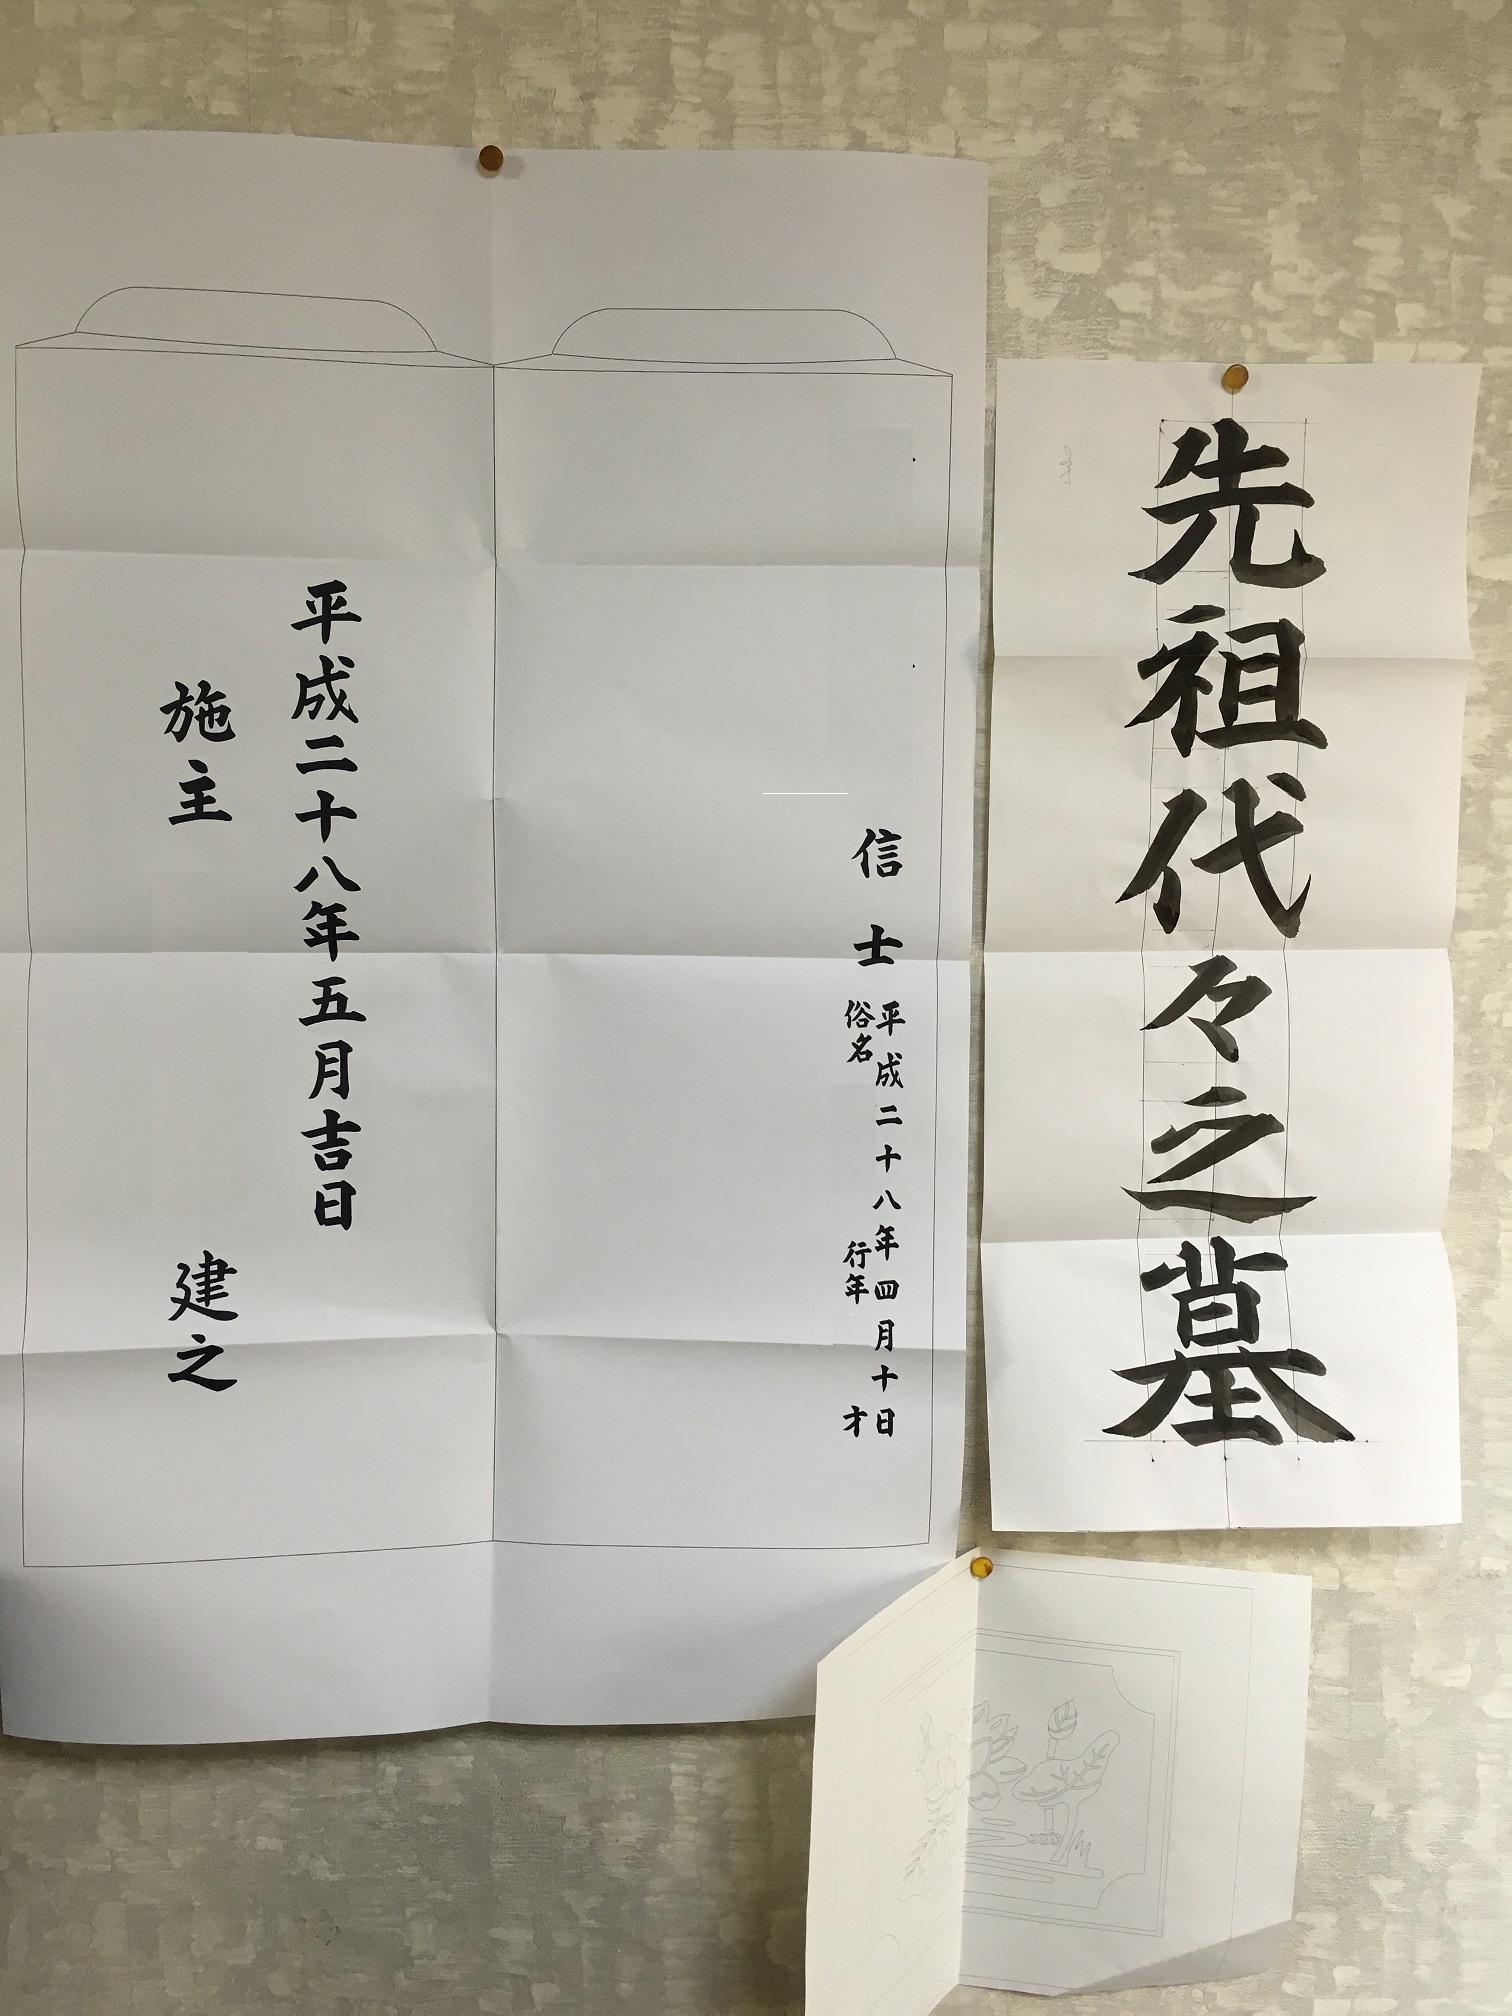 先祖代々之墓
信士
平成二十八年四月十日
俗名 行年 才
平成二十八年五月吉日
施主 建之